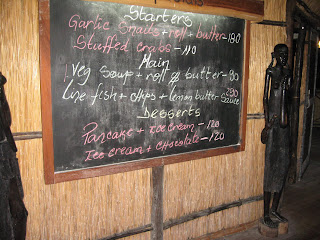 Starters
Garlic Snails + roll + butter - 180
Stuffed crabs - 110
Main
Veg Soup + roll & butter - 90
Line fish + chips + lemon butter sauce
290
Desserts
Pancake + Ice cream - 120
Ice cream + chocolate - 120